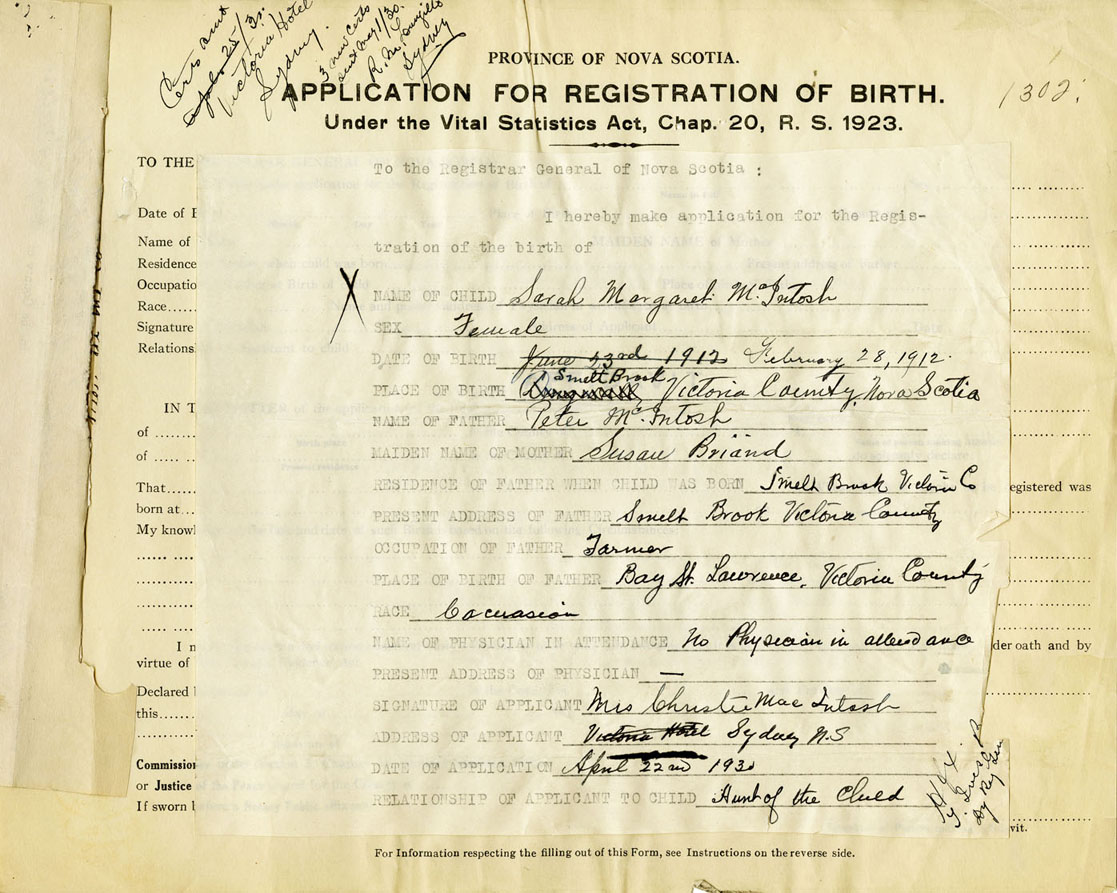 Certs sent
Apl. 25/30.
Victoria Hotel
Sydney.
3 new certs
sent May 1/30.
Sydney
PROVINCE OF NOVA SCOTIA.
APPLICATION FOR REGISTRATION OF BIRTH.
1302.
Under the Vital Statistics Act, Chap. 20, R. S. 1923.
TO THE
To the Registrar General of Nova Scotia :
Date of
I hereby make application for the Regis-
Name of
tration of the birth of
Residence
Occupatio
NAME OF CHILD Sarah Margaret McIntosh
Race
X
Signature
SEX Female
Relations
DATE OF BIRTH June 23rd 1912 February 28, 1912.
Smelt Brook
PLACE OF BIRTH Victoria County, Nova Scotia
IN T
NAME OF FATHER Peter McIntosh
of
MAIDEN NAME OF MOTHER Susan Briand
of
RESIDENCE OF FATHER WHEN CHILD WAS BORN Smelt Brook Victoria Co
That
egistered was
born at
PRESENT ADDRESS OF FATHER Smelt Brook Victoria County
My knowl
OCCUPATION OF FATHER Farmer
PLACE OF BIRTH OF FATHER Bay St. Lawrence, Victoria County
RACE Cacuasion
NAME OF PHYSICIAN IN ATTENDANCE No Physician in attendance
der oath and by
virtue of
PRESENT ADDRESS OF PHYSICIAN —
Declared
SIGNATURE OF APPLICANT Mrs Christie Mac Intosh
this
ADDRESS OF APPLICANT Victoria Hotel Sydney N.S
Commission
DATE OF APPLICATION April 22nd 1930
or Justice
RELATIONSHIP OF APPLICANT TO CHILD Aunt of the Child
If sworn
vit.
For Information respecting the filling out of this Form, see Instructions on the reverse side.